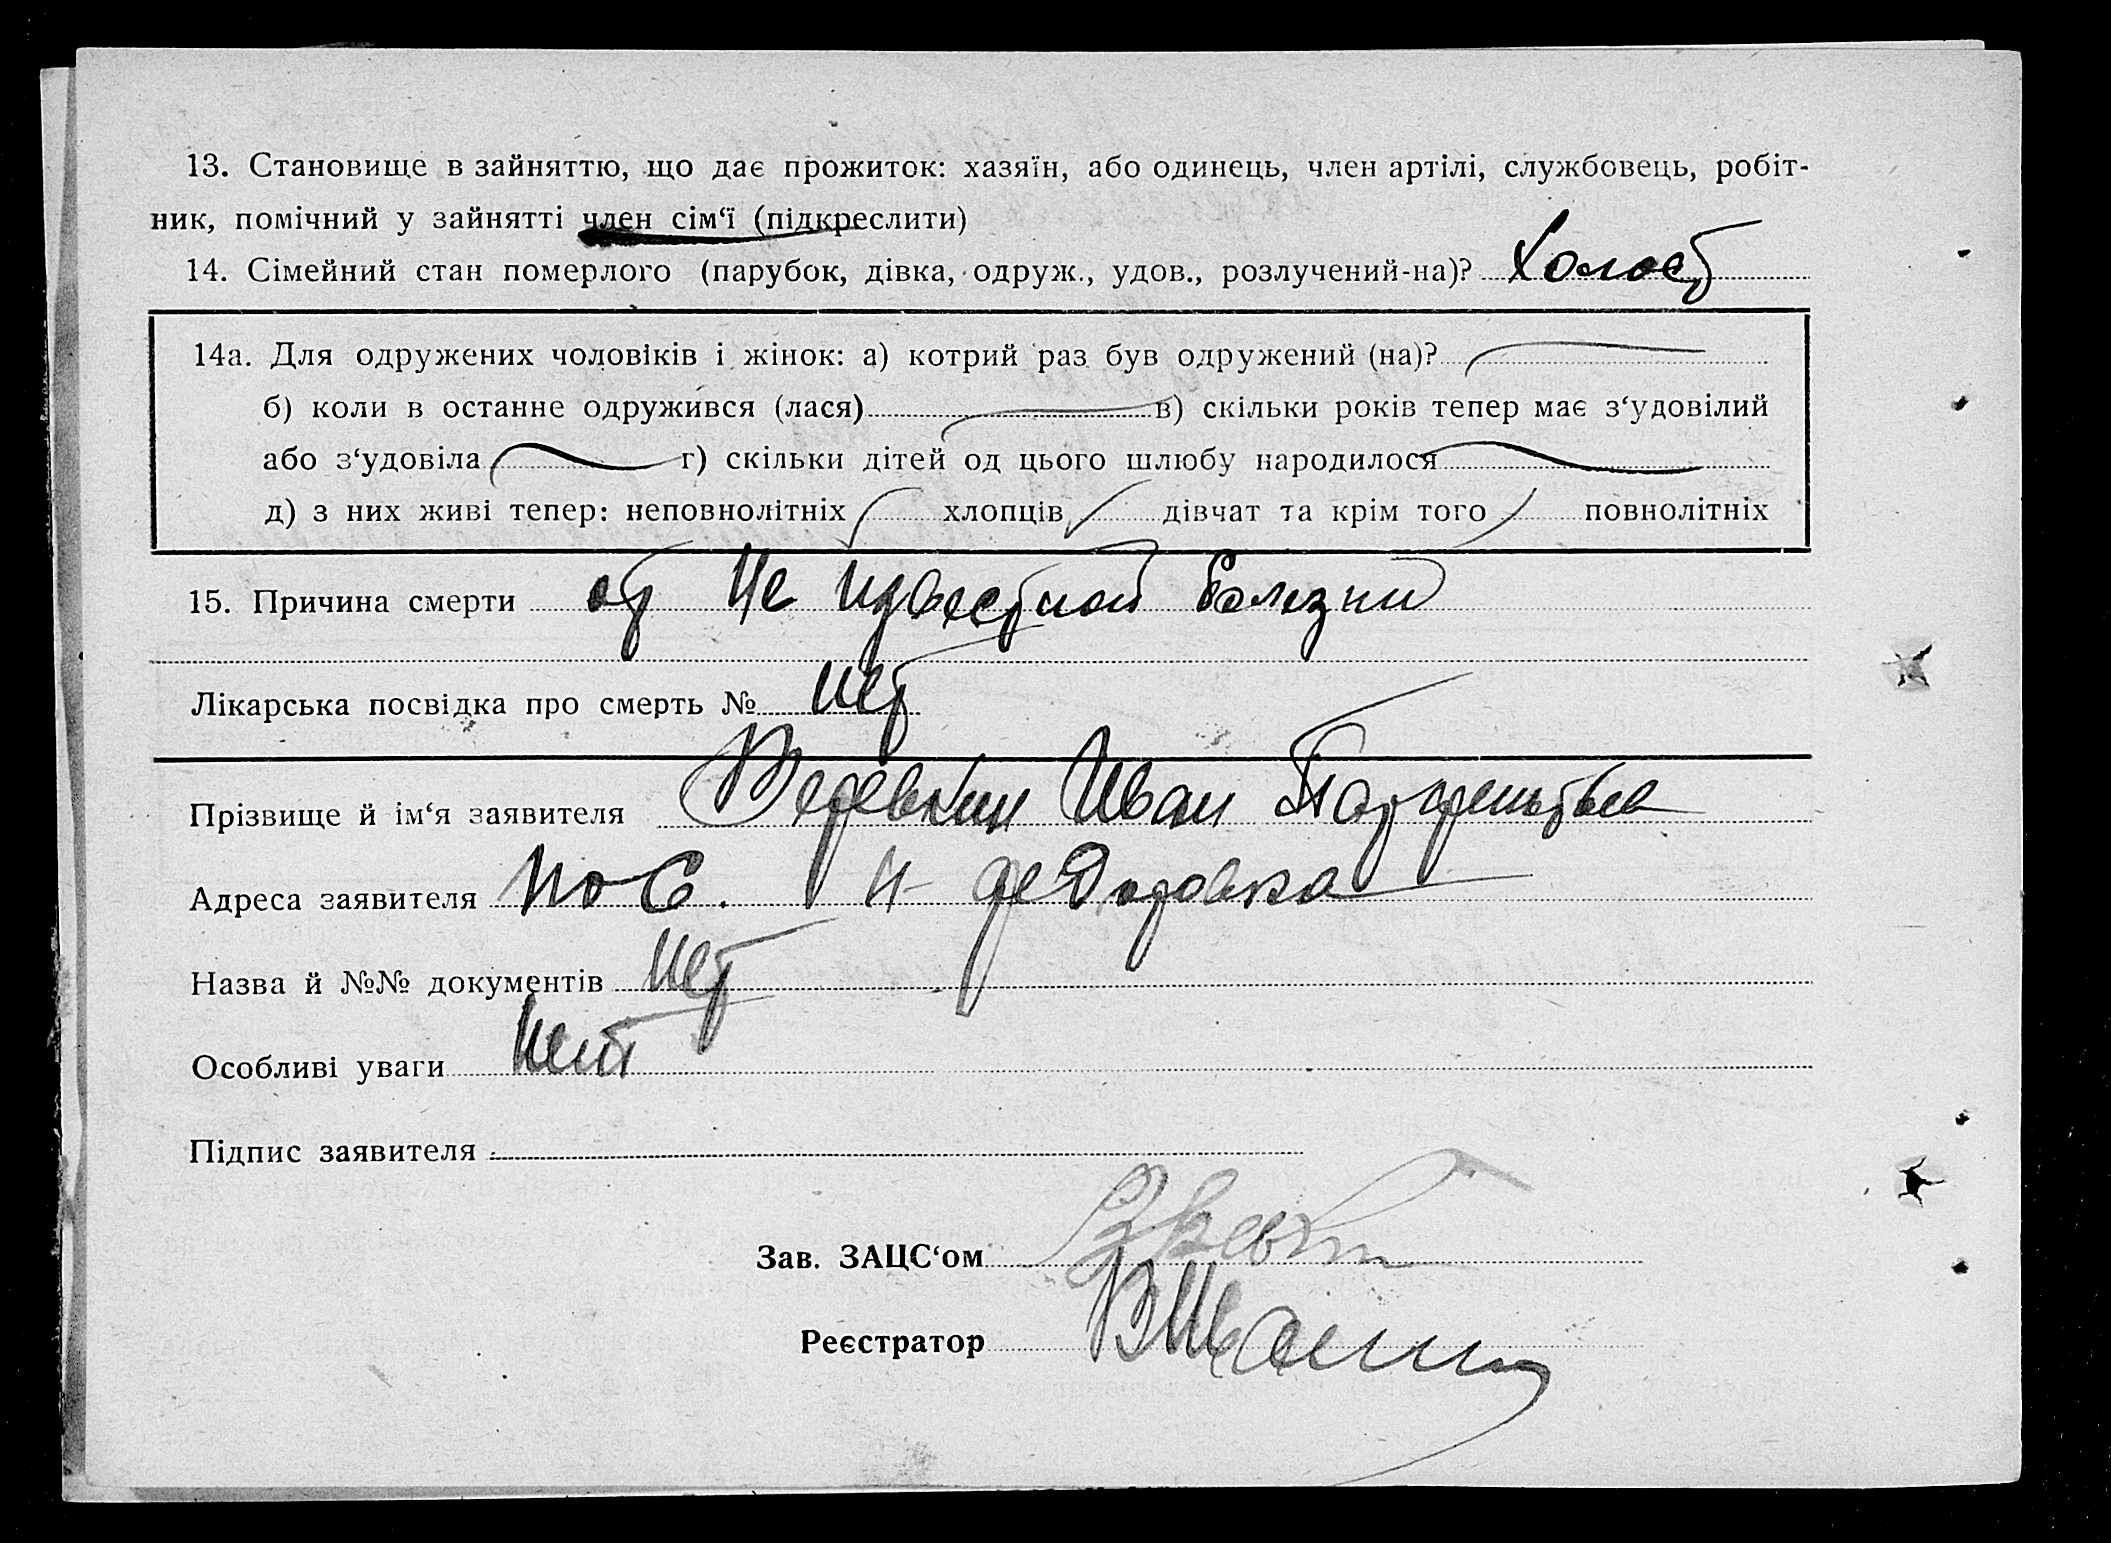 13. Становище в зайняттю, що дає прожиток: хазяїн, або одинець, член артілі, службовець, робіт-
ник, помічний у зайнятті член сім‘ї (підкреслити)
14. Сімейний стан померлого (парубок, дівка, одруж., удов., розлучений-на)? Холост
14а. Для одружених чоловіків і жінок: а) котрий раз був одружений (на)?
б) коли в останне одружився (лася) в) скільки років тепер має з‘удовілий
або з‘удовіла г) скільки дітей од цього шлюбу народилося
д) з них живі тепер: неповнолітніх хлопців дівчат та крім того повнолітніх
15. Причина смерти от не известной болезни
Лікарська посвідка про смерть № нет
Прізвище й ім‘я заявителя Иван
Адреса заявителя пос. Н-Федоровка
Назва й №№ документів нет
Особливі уваги нет
Підпис заявителя
Зав. ЗАЦС‘ом
Реєстратор